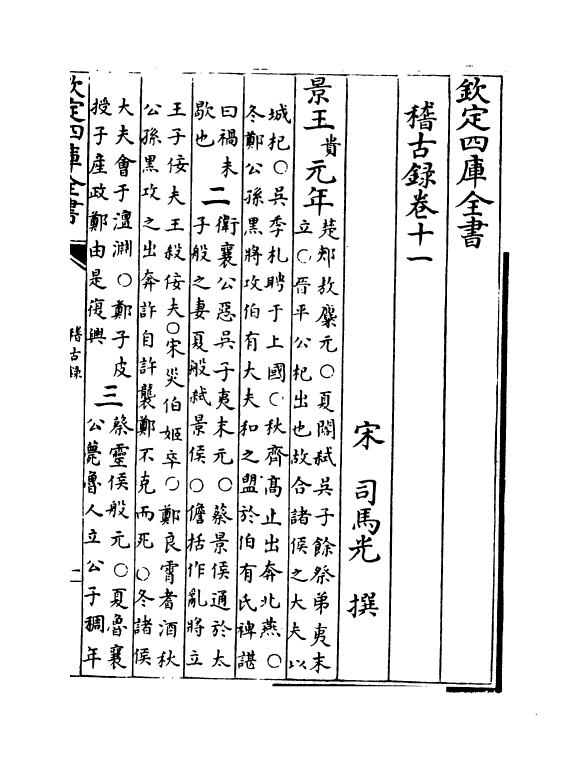 欽定四庫全書
稽古錄卷十一
宋 司馬光 撰
景王貴元年
楚郟敖麇元〇夏閽弑吳子餘祭弟夷末
立〇晉平公杞出也故合諸侯之大夫以
城杞〇吳季札聘于上國〇秋齊髙止出奔北燕〇
冬鄭公孫黒將攻伯有大夫和之盟於伯有氏裨諶
曰禍未
歇也
二
衛襄公惡吳子夷末元〇蔡景侯通於太
子般之妻夏般弑景侯〇儋括作亂將立
王子佞夫王殺佞夫〇宋災伯姬卒〇鄭良霄耆酒秋
公孫黒攻之出奔許自許襲鄭不克而死〇冬諸侯
大夫會于澶淵〇鄭子皮
授子產政鄭由是復興
三
蔡靈侯般元〇夏魯襄
公薨魯人立公子稠年
欽定四庫全書
稽古録